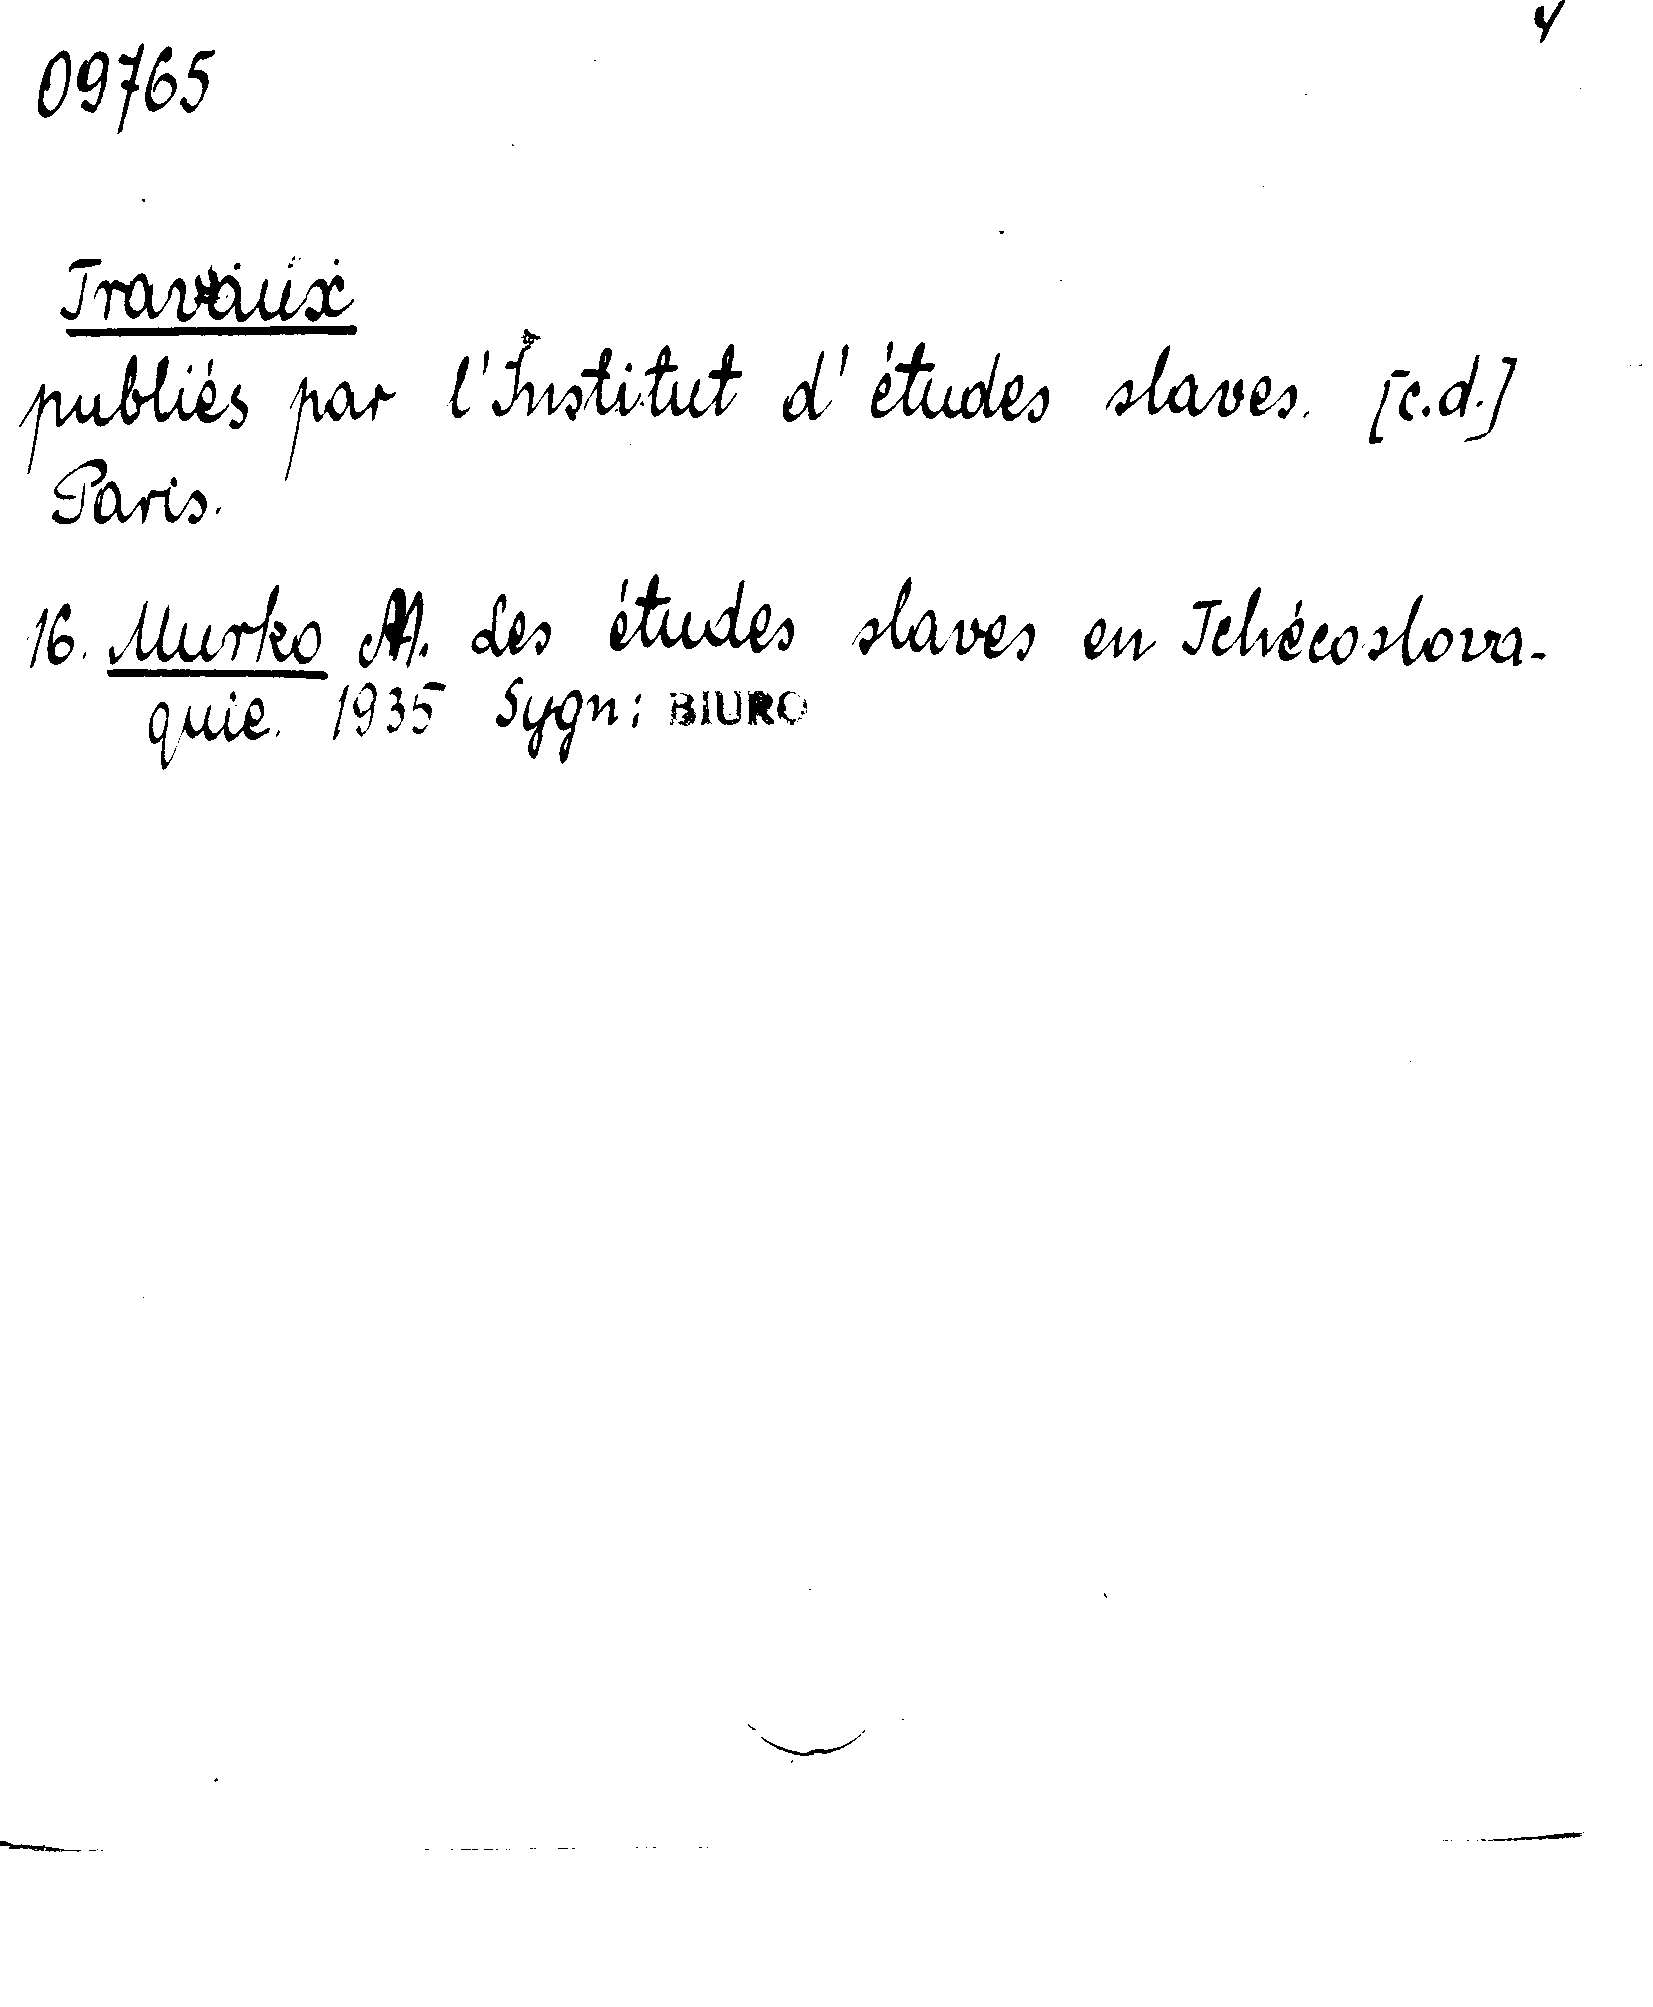 4
09765
Travaux
publiés par l'Institut d'études slaves. [c.d.]
Paris.
16. Murko M. Les études slaves en Tchécoslova-
quie. 1935 Sygn: BIURO